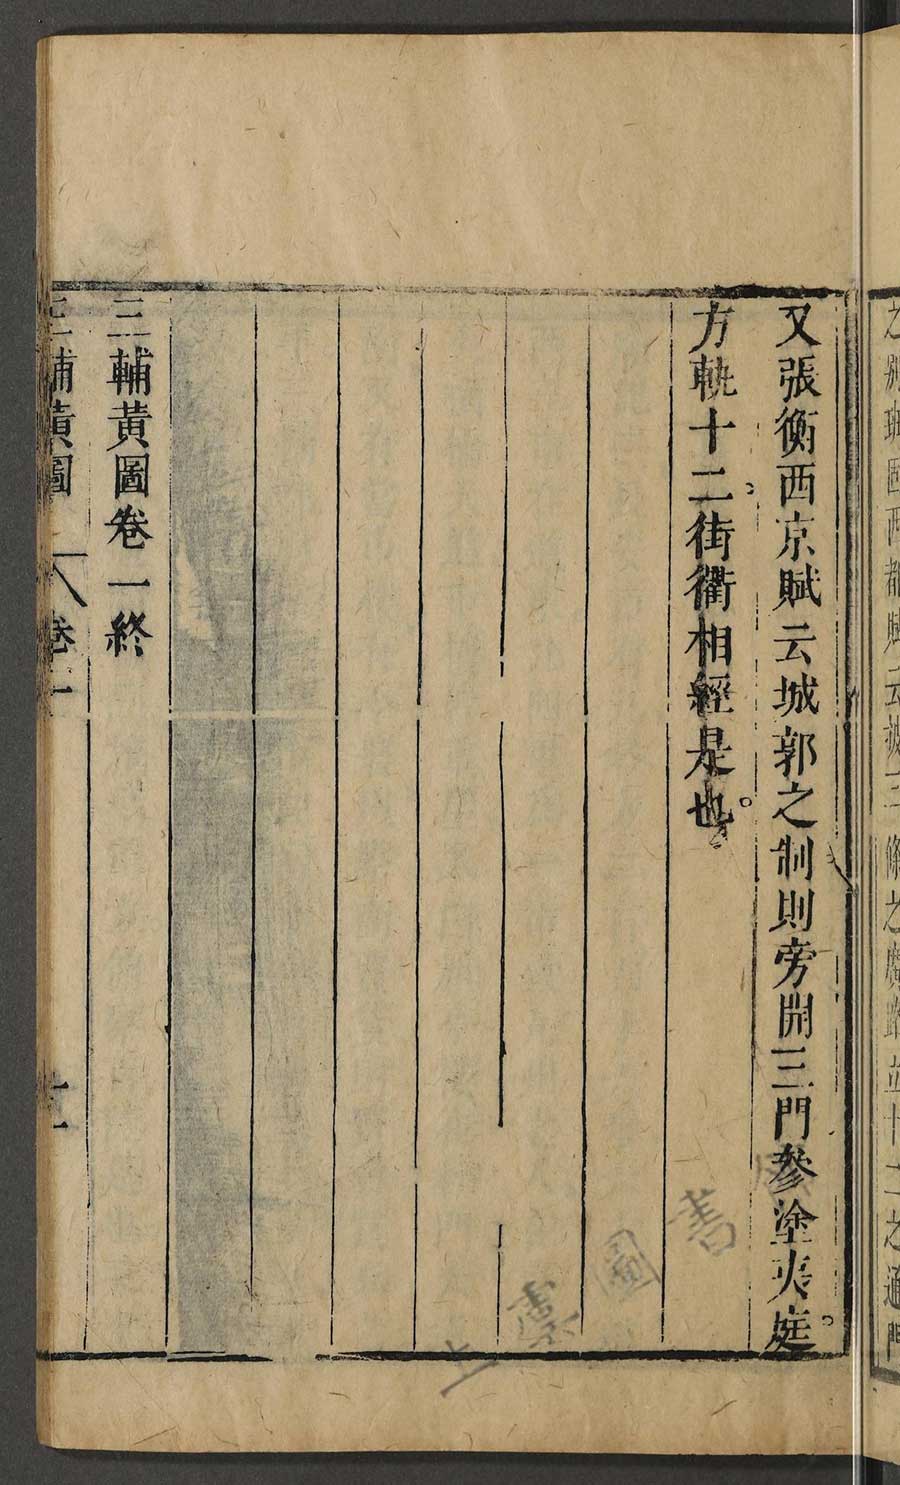 之制班固西都賦云披三條之廣路立十二之通門
又張衡西京賦云城郭之制則旁開三門參塗夷庭
方軌十二街衢相經是也
三輔黃圖卷一終
三輔黃圖 卷一
上虞圖書